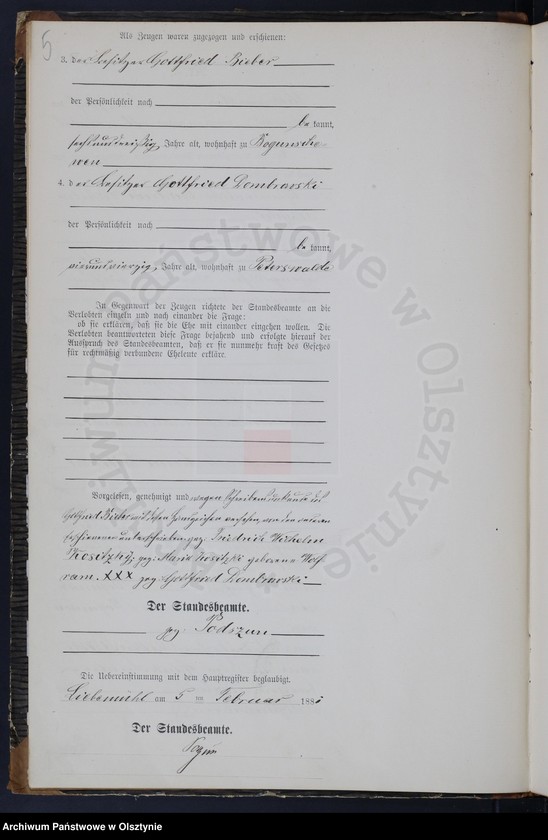 5
Als Zeugen waren zugezogen und erschienen:
3. der Besitzer Gottfried Bieber
der Persönlichkeit nach
be kannt,
sechsunddreißig Jahre alt, wohnhaft zu Bogunscho-
wen
4. der Besitzer Gottfried Dombrowski
der Persönlichkeit nach
be kannt,
vierundvierzig Jahre alt, wohnhaft zu Peterswalde
In Gegenwart der Zeugen richtete der Standesbeamte an die
Verlobten einzeln und nach einander die Frage:
ob sie erklären, daß sie die Ehe mit einander eingehen wollen. Die
Verlobten beantworteten diese Frage bejahend und erfolgte hierauf der
Ausspruch des Standesbeamten, daß er sie nunmehr kraft des Gesetzes
für rechtmäßig verbundene Eheleute erkläre.
Vorgelesen, genehmigt und wegen Schreibensunkunde des
Gottfried Bieber mit dessen Handzeichen versehen, von den anderen
Erschienenen unterschrieben. gez. Friedrich Wilhelm
Kositzky, gez. Marie Kositzki geborene Wolf-
ram. XXX gez. Gottfried Dombrowski
Der Standesbeamte.
gez. Podszun
Die Uebereinstimmung mit dem Hauptregister beglaubigt.
Liebemühl am 5 ten Februar 188
Der Standesbeamte.
Archiwum Państwowe w Olsztynie
Archiwum Państwowe w Olsztynie